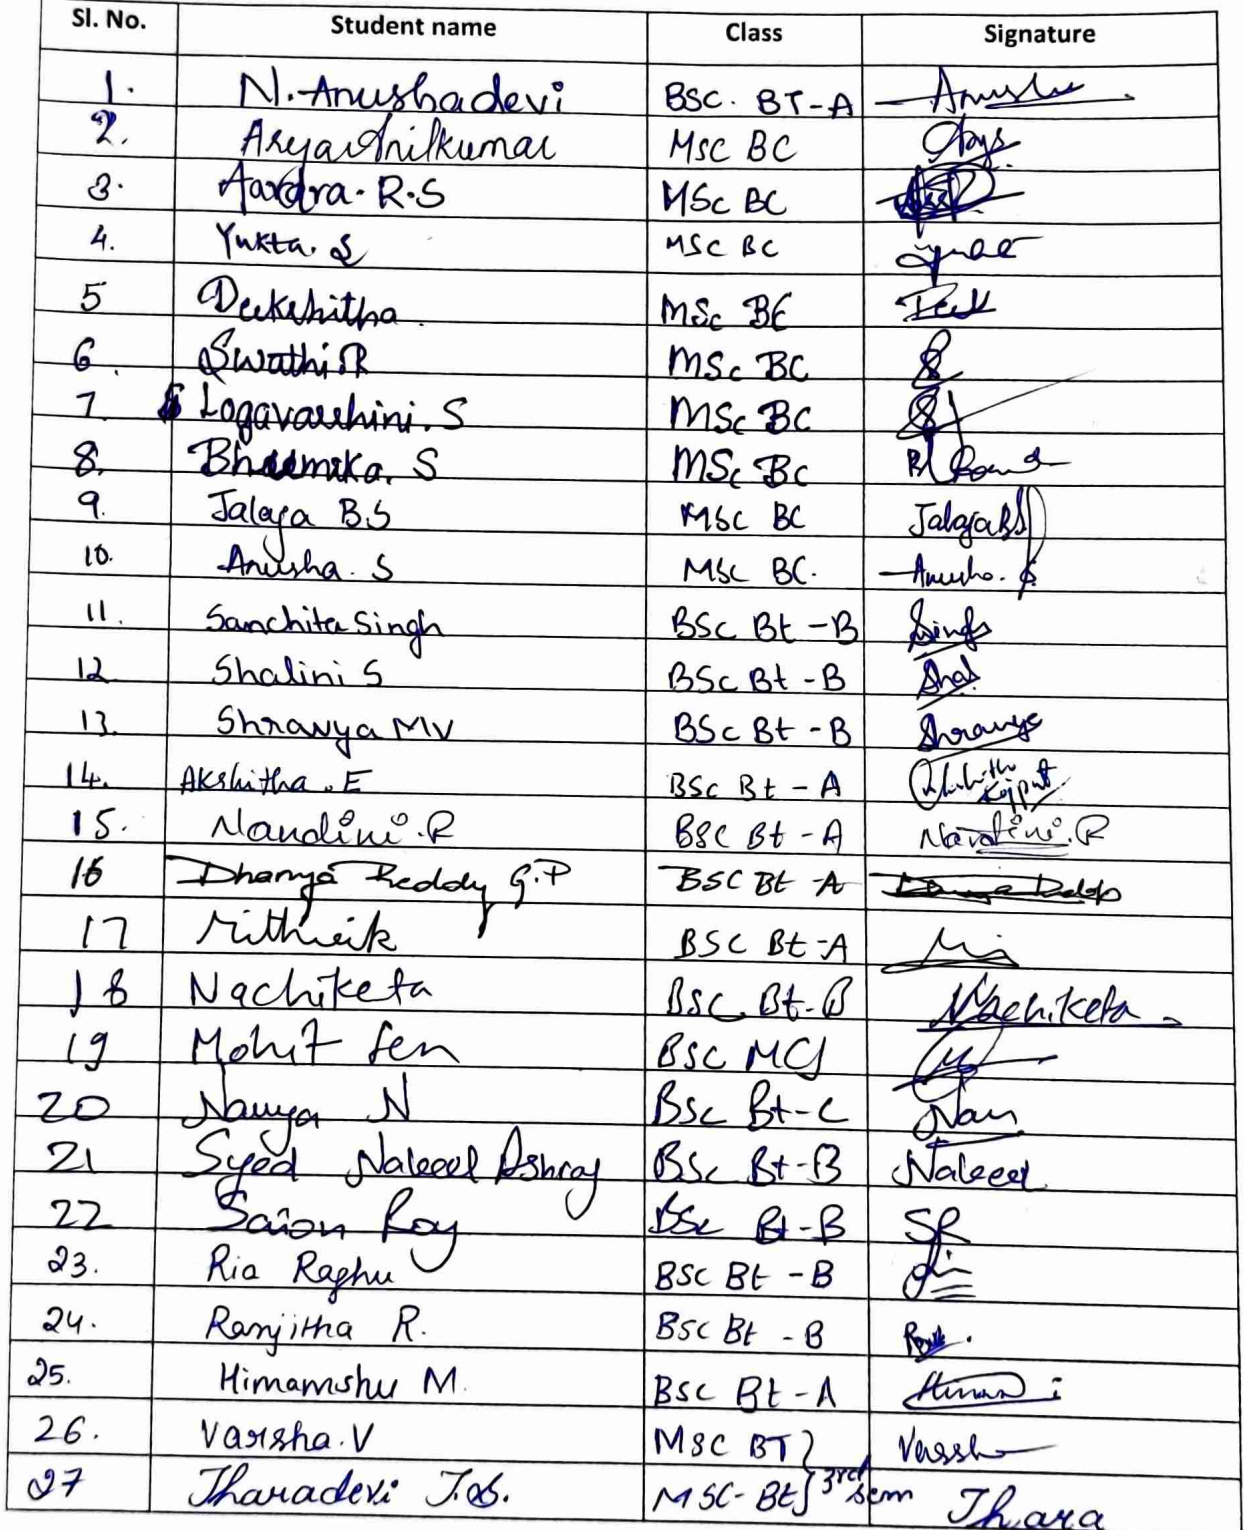 Sl. No. Student name Class Signature
1. N. Anushadevi BSC. BT-A Anusha
2. Arya Anilkumar MSC BC
3. Aardra. R.S MSc BC
4. Yukta. S MSC BC
5 Deekshitha. MSc BC Deek
6. Swathi R MSc BC
7. Logavarshini. S MSc BC
8. Bhoomika. S MSc BC
9. Jalaja B.S MSC BC Jalaja BS
10. Anusha. S MSC BC. Anusha. S
11. Sanchita Singh BSc Bt -B Singh
12 Shalini S BSc Bt -B Shal
13. Shravya MV BSc Bt -B Shravya
14. Akshitha. E BSc Bt - A
15. Nandini. R BSC Bt -A Nandini. R
16 Dhanya Reddy G.P BSC Bt -A
17 Rithvik BSC Bt -A
18 Nachiketa BSC Bt-B Nachiketa
19 Mohit Sen BSC MCJ
20 Navya N BSc Bt-C Nav
21 Syed Nabeel Ashraf BSc Bt-B Nabeel
22 Saion Roy BSc Bt-B SR
23. Ria Raghu BSC Bt -B
24. Ranjitha R. BSC Bt -B
25. Himamshu M. BSC Bt -A
26. Varsha. V MSC BT } Varsha
27 Tharadevi T.S. MSC-Bt } 3rd sem Thara